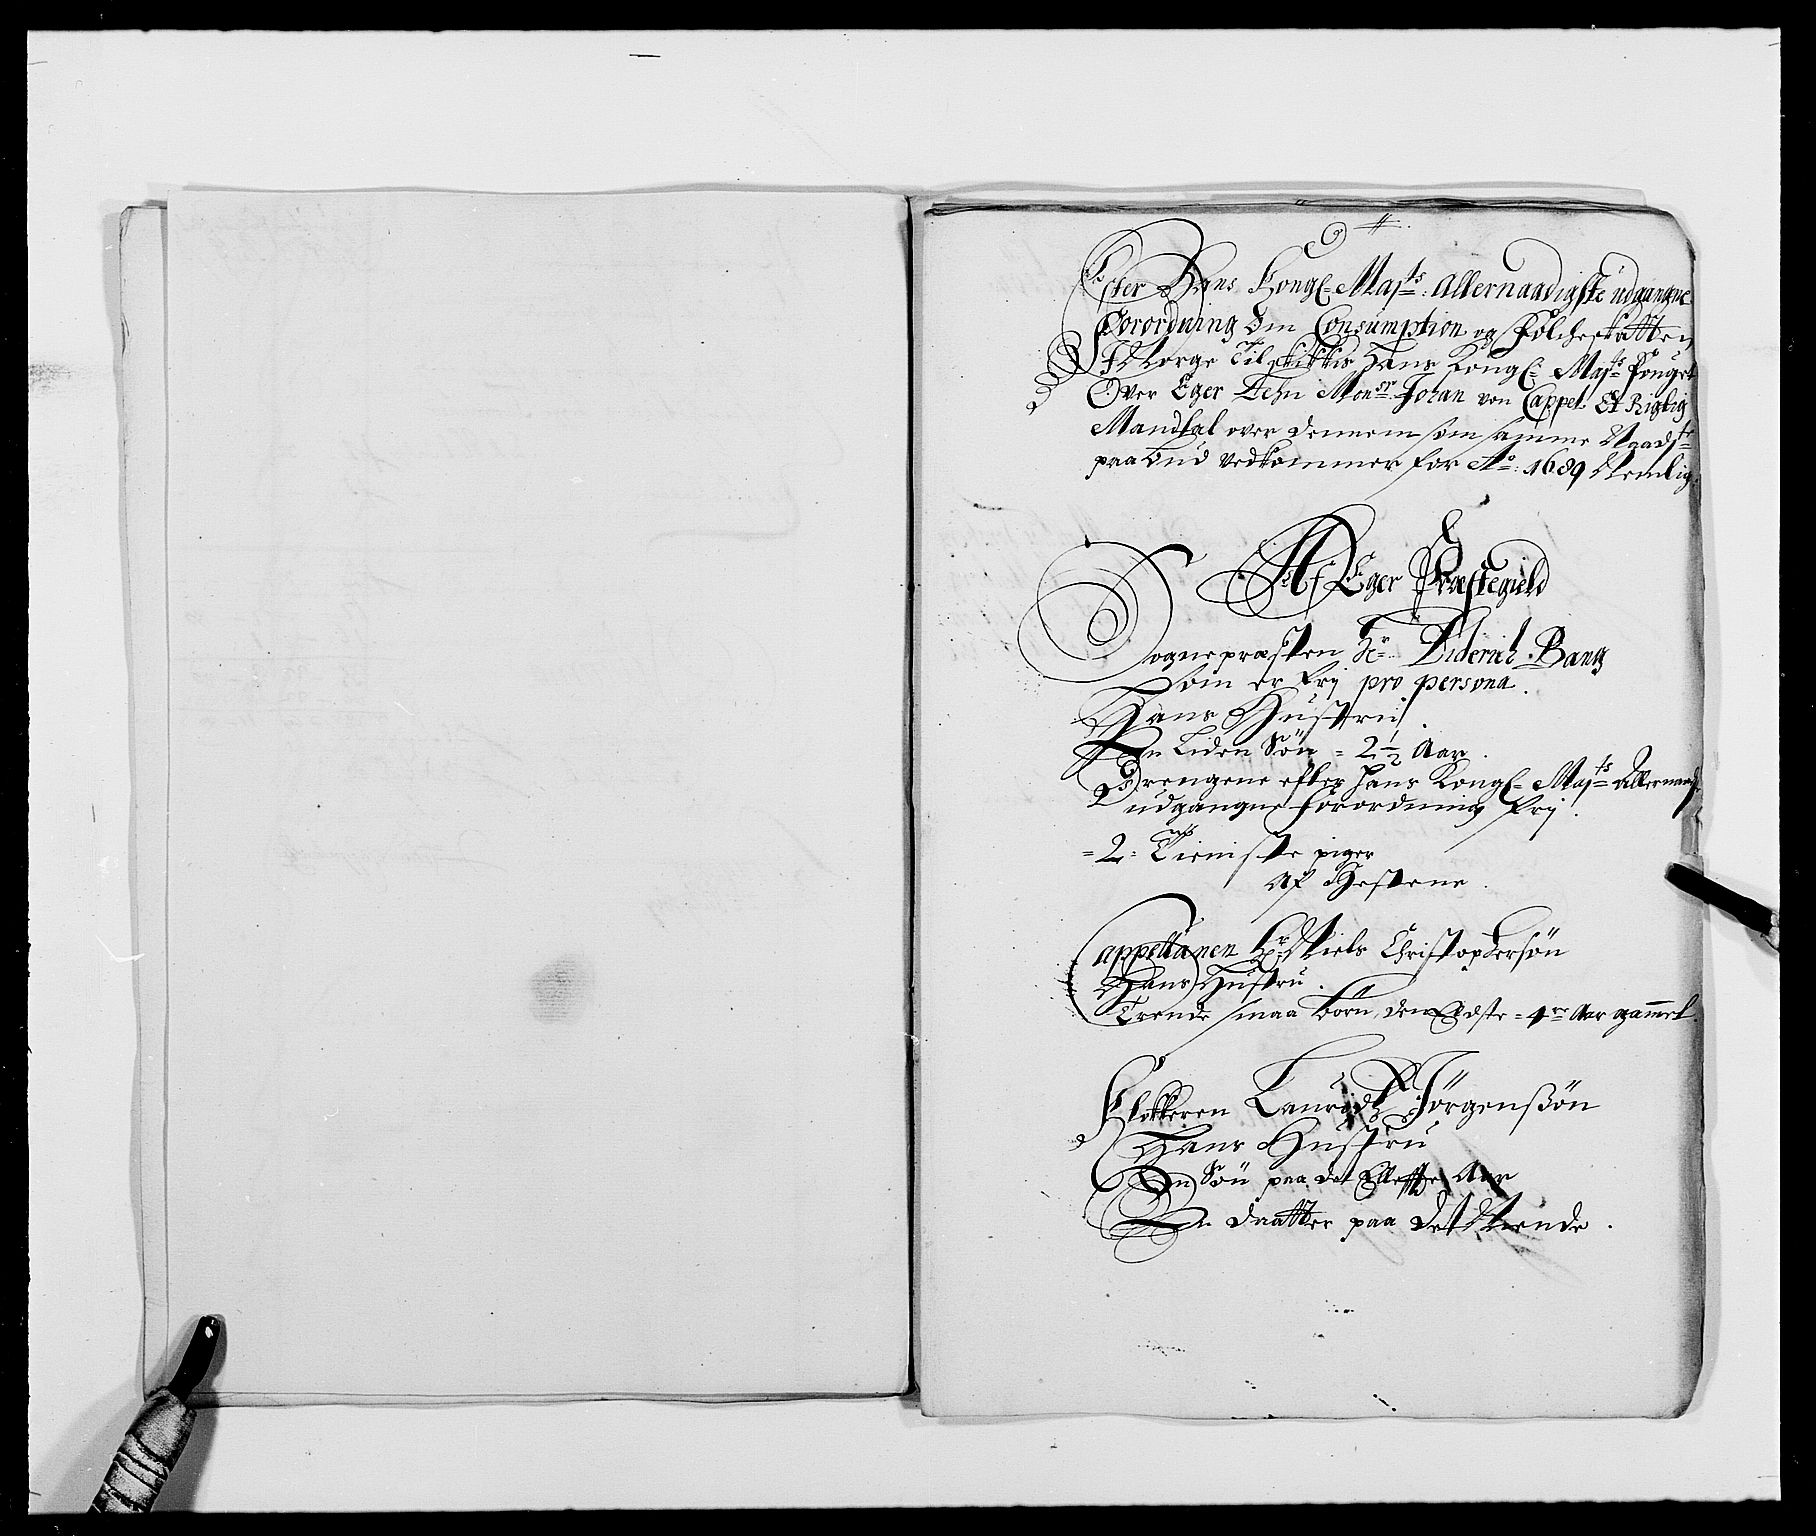 Efter Hans Kongl= Majts: Allernaadigste udgangne
Forordning Om Consumption og Folcheskatten
I Norge Tilskikkis Hans Kongl= Majts Fouget
Over Eger Lehn Monsr Johan von Cappel Et Rigtig
Mandtal over dennem som samme Naadste
paabud vedkommer for Ao: 1689 Nemlig:
Af Eger Præstegield
Sognepræsten Hr= Diderich Bang
som er frij pro persona.
Hans Hustru.
En Liden Søn = 2½ Aar.
Drengene efter Hans Kongl= Majts Allernaadste
udgangne forordning frij.
=2= Tieniste piger
Af Hestene.
Cappellanen Hr Niels Christophersøn
Hans Hustru.
Trende smaa børn, den Eldste = 4re Aar gammel.
Klokkeren Lauridtz Jörgensßön
Hans Hustru
En Søn paa det Ellefte Aar
En daatter paa det Niende.